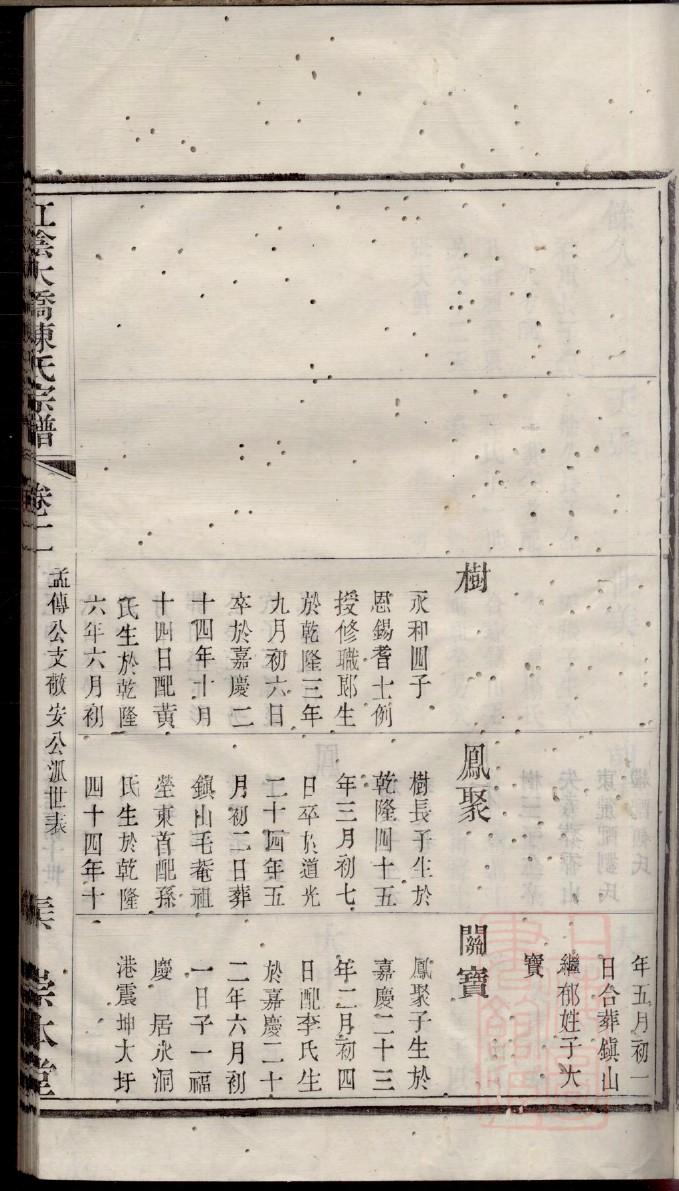 年五月初一
日合葬鎮山
繼郁姓子大
寶
樹
永和四子
恩錫耆士例
授修職郎生
於乾隆三年
九月初六日
卒於嘉慶二
十四年十月
十四日配黃
氏生於乾隆
六年六月初
鳳聚
樹長子生於
乾隆四十五
年三月初七
日卒於道光
二十四年五
月初二日葬
鎮山毛菴祖
塋東首配孫
氏生於乾隆
四十四年十
關寶
鳳聚子生於
嘉慶二十三
年二月初四
日配李氏生
於嘉慶二十
二年六月初
一日子一福
慶 居永洞
港震坤大圩
江陰大橋陳氏宗譜
卷二
孟傳公支敬安公派世表
崇本堂